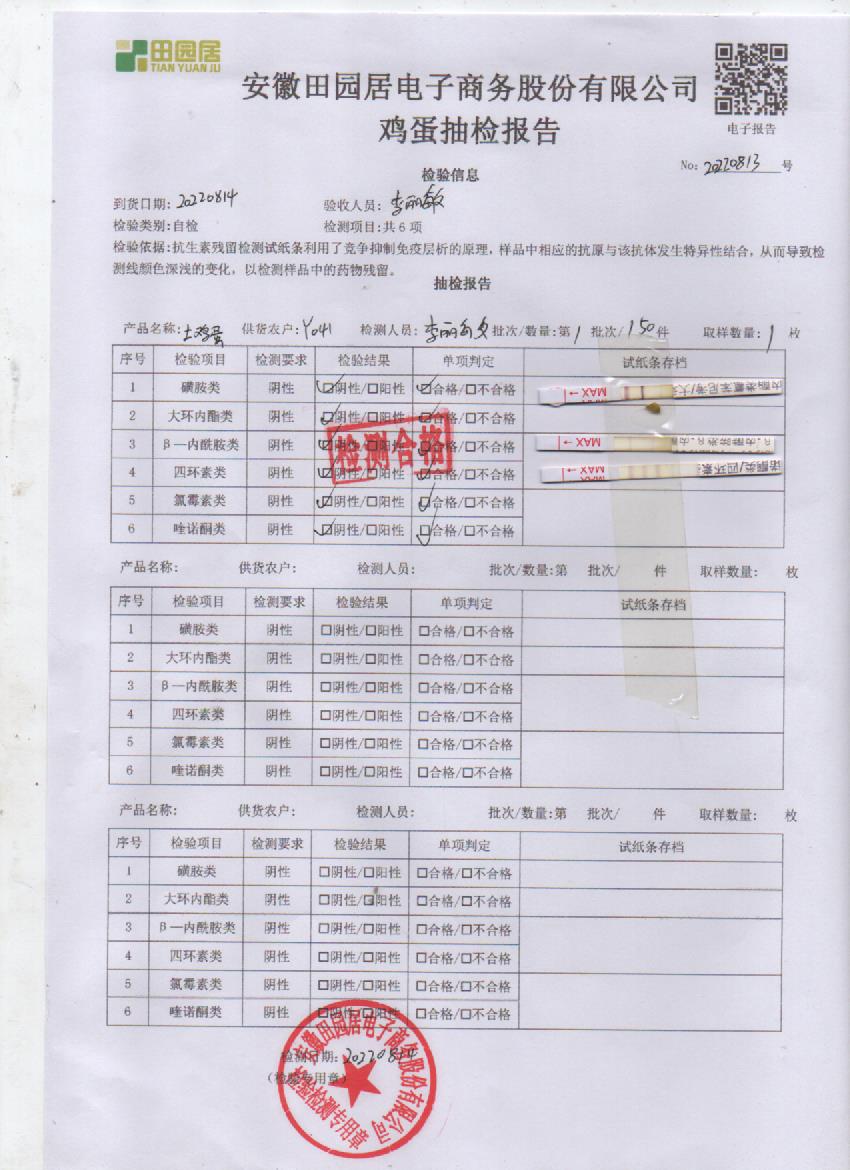 田园居
TIAN YUAN JU
安徽田园居电子商务股份有限公司
鸡蛋抽检报告
电子报告
No: 20220813 号
检验信息
到货日期: 20220814 验收人员: 李丽敏
检验类别:自检 检测项目:共6项
检验依据:抗生素残留检测试纸条利用了竞争抑制免疫层析的原理，样品中相应的抗原与该抗体发生特异性结合，从而导致检
测线颜色深浅的变化，以检测样品中的药物残留。
抽检报告
产品名称:土鸡蛋 供货农户:Y041 检测人员: 李丽敏 批次/数量:第1 批次/150件 取样数量:1 枚
序号 检验项目 检测要求 检验结果 单项判定 试纸条存档
1 磺胺类 阴性 ☑阴性/☐阳性 ☑合格/☐不合格
MAX
2 大环内酯类 阴性 ☑阴性/☐阳性 ☑合格/☐不合格
3 β—内酰胺类 阴性 ☑阴性/☐阳性 ☑合格/☐不合格
MAX
4 四环素类 阴性 ☑阴性/☐阳性 ☑合格/☐不合格
MAX 诺酮类/四环素
5 氯霉素类 阴性 ☑阴性/☐阳性 ☑合格/☐不合格
6 喹诺酮类 阴性 ☑阴性/☐阳性 ☑合格/☐不合格
检测合格
产品名称: 供货农户: 检测人员: 批次/数量:第 批次/ 件 取样数量: 枚
序号 检验项目 检测要求 检验结果 单项判定 试纸条存档
1 磺胺类 阴性 ☐阴性/☐阳性 ☐合格/☐不合格
2 大环内酯类 阴性 ☐阴性/☐阳性 ☐合格/☐不合格
3 β—内酰胺类 阴性 ☐阴性/☐阳性 ☐合格/☐不合格
4 四环素类 阴性 ☐阴性/☐阳性 ☐合格/☐不合格
5 氯霉素类 阴性 ☐阴性/☐阳性 ☐合格/☐不合格
6 喹诺酮类 阴性 ☐阴性/☐阳性 ☐合格/☐不合格
产品名称: 供货农户: 检测人员: 批次/数量:第 批次/ 件 取样数量: 枚
序号 检验项目 检测要求 检验结果 单项判定 试纸条存档
1 磺胺类 阴性 ☐阴性/☐阳性 ☐合格/☐不合格
2 大环内酯类 阴性 ☐阴性/☐阳性 ☐合格/☐不合格
3 β—内酰胺类 阴性 ☐阴性/☐阳性 ☐合格/☐不合格
4 四环素类 阴性 ☐阴性/☐阳性 ☐合格/☐不合格
5 氯霉素类 阴性 ☐阴性/☐阳性 ☐合格/☐不合格
6 喹诺酮类 阴性 ☐阴性/☐阳性 ☐合格/☐不合格
检测日期: 20220814
(检验专用章)
安徽田园居电子商务股份有限公司
检验检测专用章